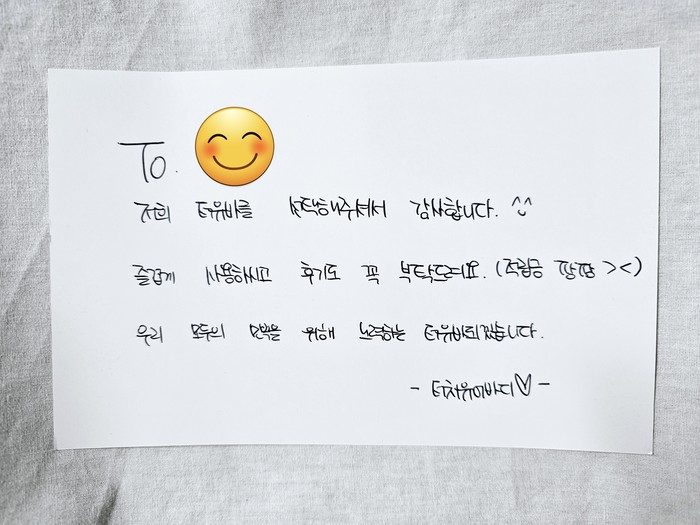 To.
저희 터유바를 선택해주셔서 감사합니다. ^^
즐겁게 사용하시고 후기도 꼭 부탁드려요. (적립금 팡팡 ><)
우리 모두의 모박을 위해 노력하는 터유바되겠습니다.
- 터치유어바디♡ -